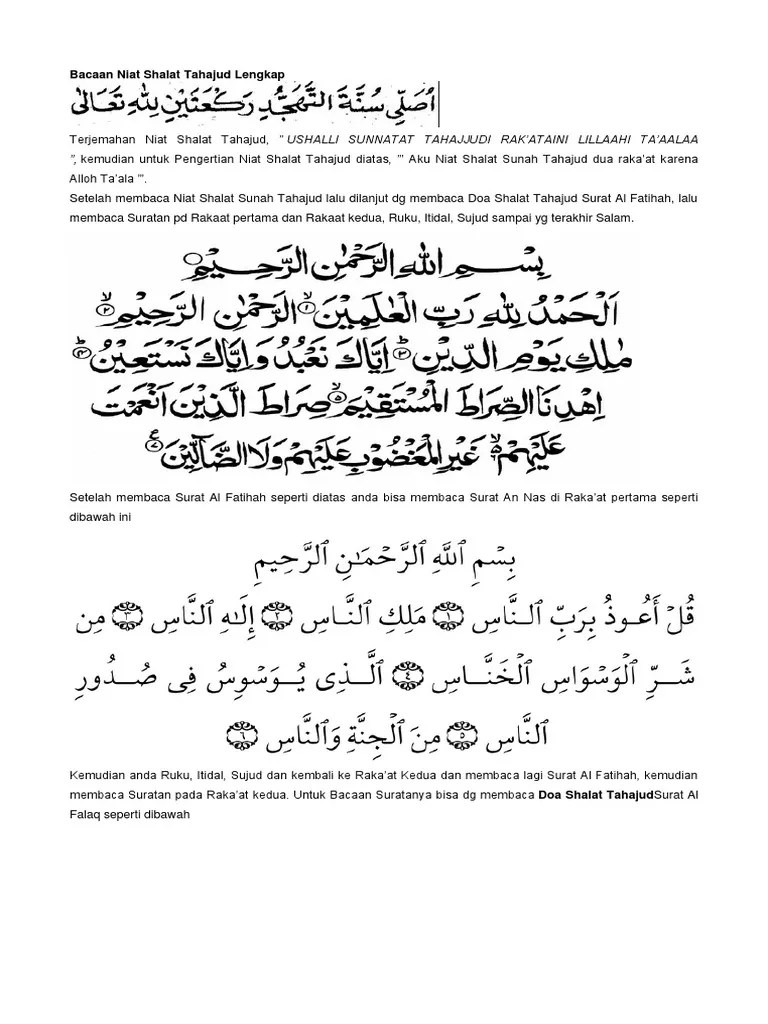 Bacaan Niat Shalat Tahajud Lengkap
اُصَلِّى سُنَّةَ التَّهَجُّدِ رَكْعَتَيْنِ لِلّٰهِ تَعَالٰى
Terjemahan Niat Shalat Tahajud, " USHALLI SUNNATAT TAHAJJUDI RAK'ATAINI LILLAAHI TA'AALAA
", kemudian untuk Pengertian Niat Shalat Tahajud diatas, "' Aku Niat Shalat Sunah Tahajud dua raka'at karena
Alloh Ta'ala "'.
Setelah membaca Niat Shalat Sunah Tahajud lalu dilanjut dg membaca Doa Shalat Tahajud Surat Al Fatihah, lalu
membaca Suratan pd Rakaat pertama dan Rakaat kedua, Ruku, Itidal, Sujud sampai yg terakhir Salam.
بِسْمِ اللهِ الرَّحْمٰنِ الرَّحِيْمِ
اَلْحَمْدُ لِلّٰهِ رَبِّ الْعٰلَمِيْنَ ۙ﴿١﴾ الرَّحْمٰنِ الرَّحِيْمِ ۙ﴿٢﴾
مٰلِكِ يَوْمِ الدِّيْنِ ۗ﴿٣﴾ اِيَّاكَ نَعْبُدُ وَاِيَّاكَ نَسْتَعِيْنُ ۗ﴿٤﴾
اِهْدِنَا الصِّرَاطَ الْمُسْتَقِيْمَ ۙ﴿٥﴾ صِرَاطَ الَّذِيْنَ اَنْعَمْتَ
عَلَيْهِمْ ۙ﴿٦﴾ غَيْرِ الْمَغْضُوْبِ عَلَيْهِمْ وَلَا الضَّآلِّيْنَ ﴿٧﴾ ع
Setelah membaca Surat Al Fatihah seperti diatas anda bisa membaca Surat An Nas di Raka'at pertama seperti
dibawah ini
بِسْمِ ٱللَّهِ ٱلرَّحْمَـٰنِ ٱلرَّحِيمِ
قُلْ أَعُوذُ بِرَبِّ ٱلنَّاسِ ﴿١﴾ مَلِكِ ٱلنَّاسِ ﴿٢﴾ إِلَـٰهِ ٱلنَّاسِ ﴿٣﴾ مِن
شَرِّ ٱلْوَسْوَاسِ ٱلْخَنَّاسِ ﴿٤﴾ ٱلَّذِى يُوَسْوِسُ فِى صُدُورِ
ٱلنَّاسِ ﴿٥﴾ مِنَ ٱلْجِنَّةِ وَٱلنَّاسِ ﴿٦﴾
Kemudian anda Ruku, Itidal, Sujud dan kembali ke Raka'at Kedua dan membaca lagi Surat Al Fatihah, kemudian
membaca Suratan pada Raka'at kedua. Untuk Bacaan Suratanya bisa dg membaca Doa Shalat TahajudSurat Al
Falaq seperti dibawah